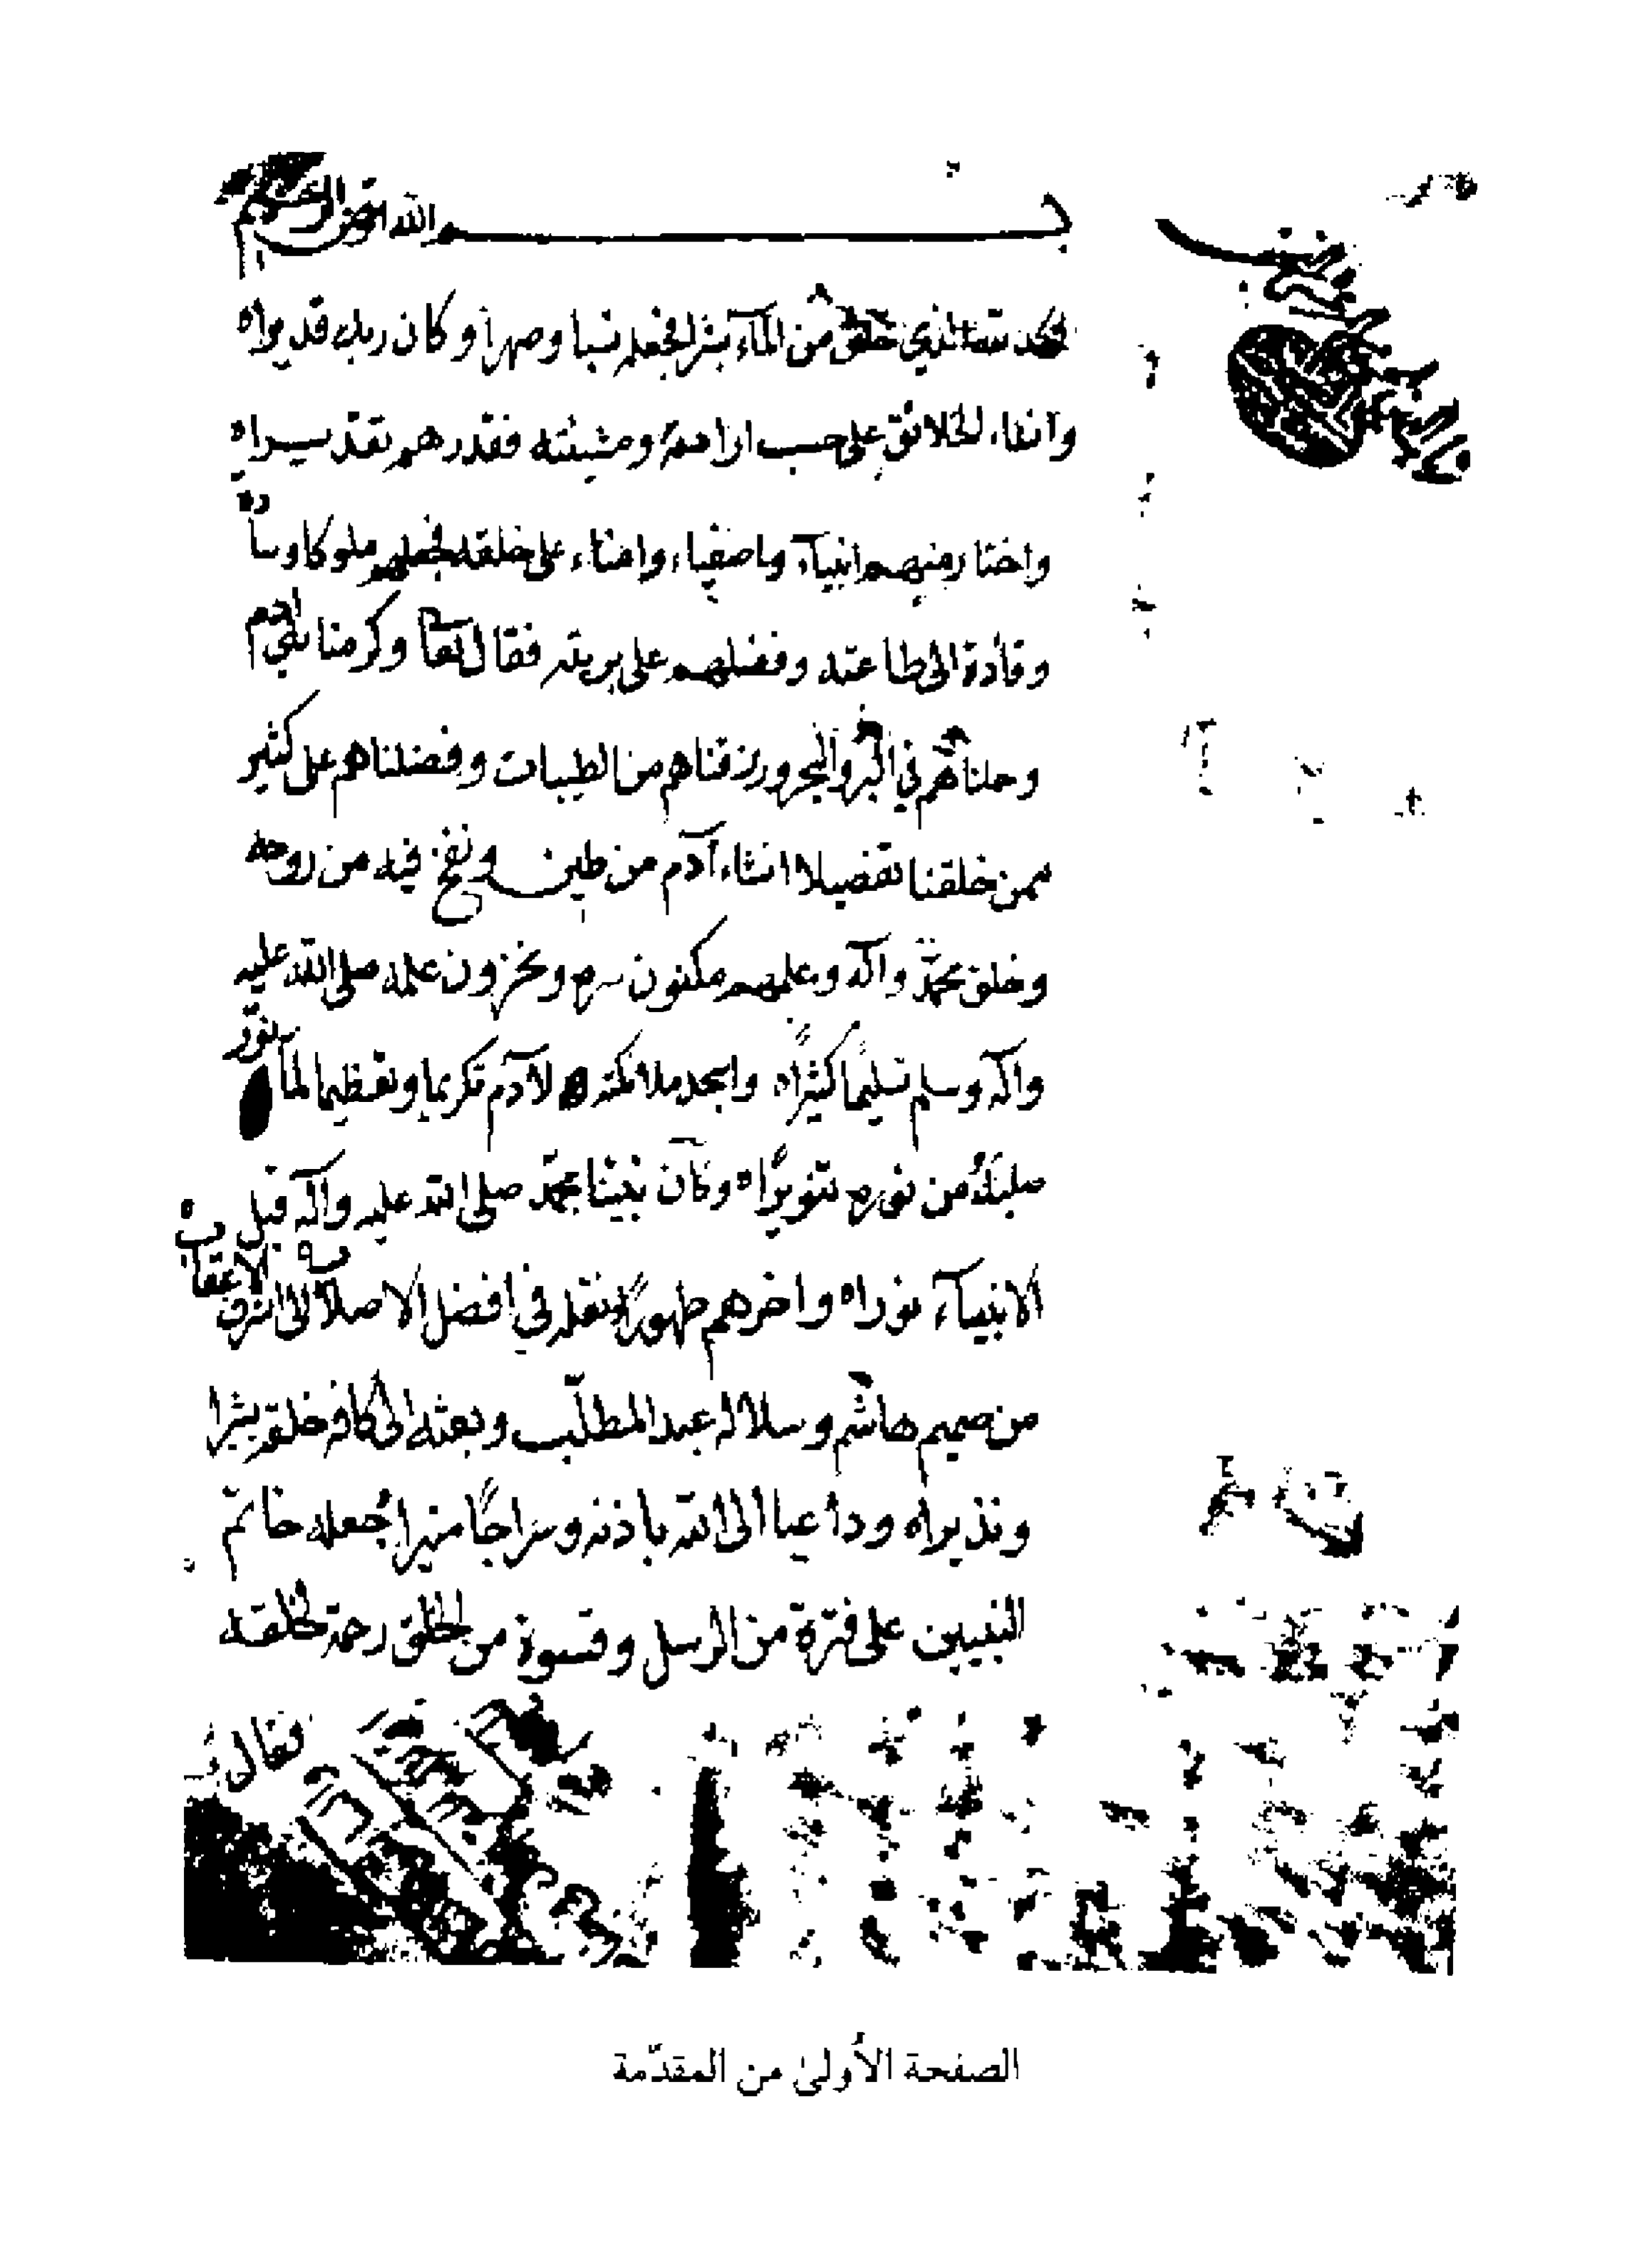 بسم الله الرحمن الرحيم
الحمد لله الذي خلق من الماء بشرا فجعله نسبا وصهرا وكان ربك قديرا
وانشاء الخلائق على حسب ارادته ومشيئته فقدرهم تقديرا
واختار منهم انبيآء واصفياء وامناء على خلقه فجعلهم ملوكا وسادة
وقادة الى طاعته وفضلهم على بريته فقال تعا وكرمنا بني آدم
وحملناهم في البر والبحر ورزقناهم من الطيبات وفضلناهم على كثير
ممن خلقنا تفضيلا انشاء آدم من طين ونفخ فيه من روحه
وخلق محمّد وآله وعلمهم مكنون سره ومخزون علمه صلى الله عليه
وآله وسلم تسليمًا كثيرًا واسجد ملائكته لآدم تكريما وتعظيما لما نوّر
صلبَهُ من نوره تنويرًا وكان نبينا محمّد صلى الله عليه وآله قبل
الانبيآء نورا واخرهم ظهورًا ونقله في افضل الاصلاب الى اشرف الاعقاب
من صميم هاشم وسلالة عبد المطلّب وبعثه الى كافة خلقه بشيرا
ونذيرا وداعيا الى الله باذنه وسراجًا منيرا جعله خاتم
النبيين على فترة من الرسل وقسوة من الخلق رحمة لخلقه
فقال
الصفحة الأولىٰ من المقدّمة